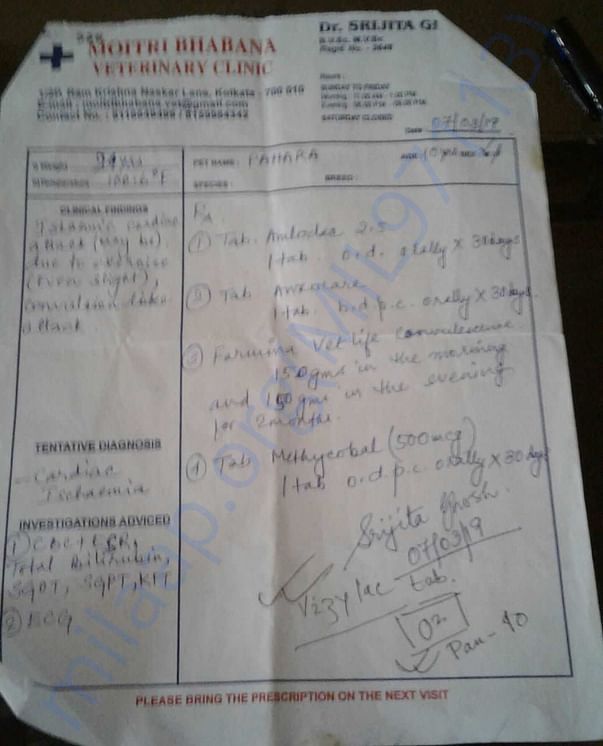 Dr. SRIJITA G
MOITRI BHABANA
VETERINARY CLINIC
B.V.Sc. M.V.Sc
Regd No. -
Ram Krishna Naskar Lane, Kolkata - 700 010
Contact No. :
Hours :
SUNDAY TO FRIDAY
SATURDAY CLOSED
Date 07/03/19
PET NAME : PAHARA
AGE: 10
SPECIES : BREED :
CLINICAL FINDINGS
cardiac
attack (may be)
due to exercise
(even slight),
convulsion like
attack.
① Tab. 2.5
1 tab. o.d. orally X 30 days
② Tab
1 tab. b.d.p.c. orally X 30 days.
③ Farmina Vet life Convalescence
150 gms in the morning
and 150 gms in the evening
for 2 months.
④ Tab Methycobal (500 mcg)
1 tab o.d.p.c. orally X 30 days
TENTATIVE DIAGNOSIS
- Cardiac
Ischaemia
INVESTIGATIONS ADVICED
① CBC +
Total Bilirubin,
SGOT, SGPT, KFT
② ECG
Srijita Ghosh.
07/03/19
Vizylac tab.
02
Pan-40
PLEASE BRING THE PRESCRIPTION ON THE NEXT VISIT
milaap.org(MIL97113)